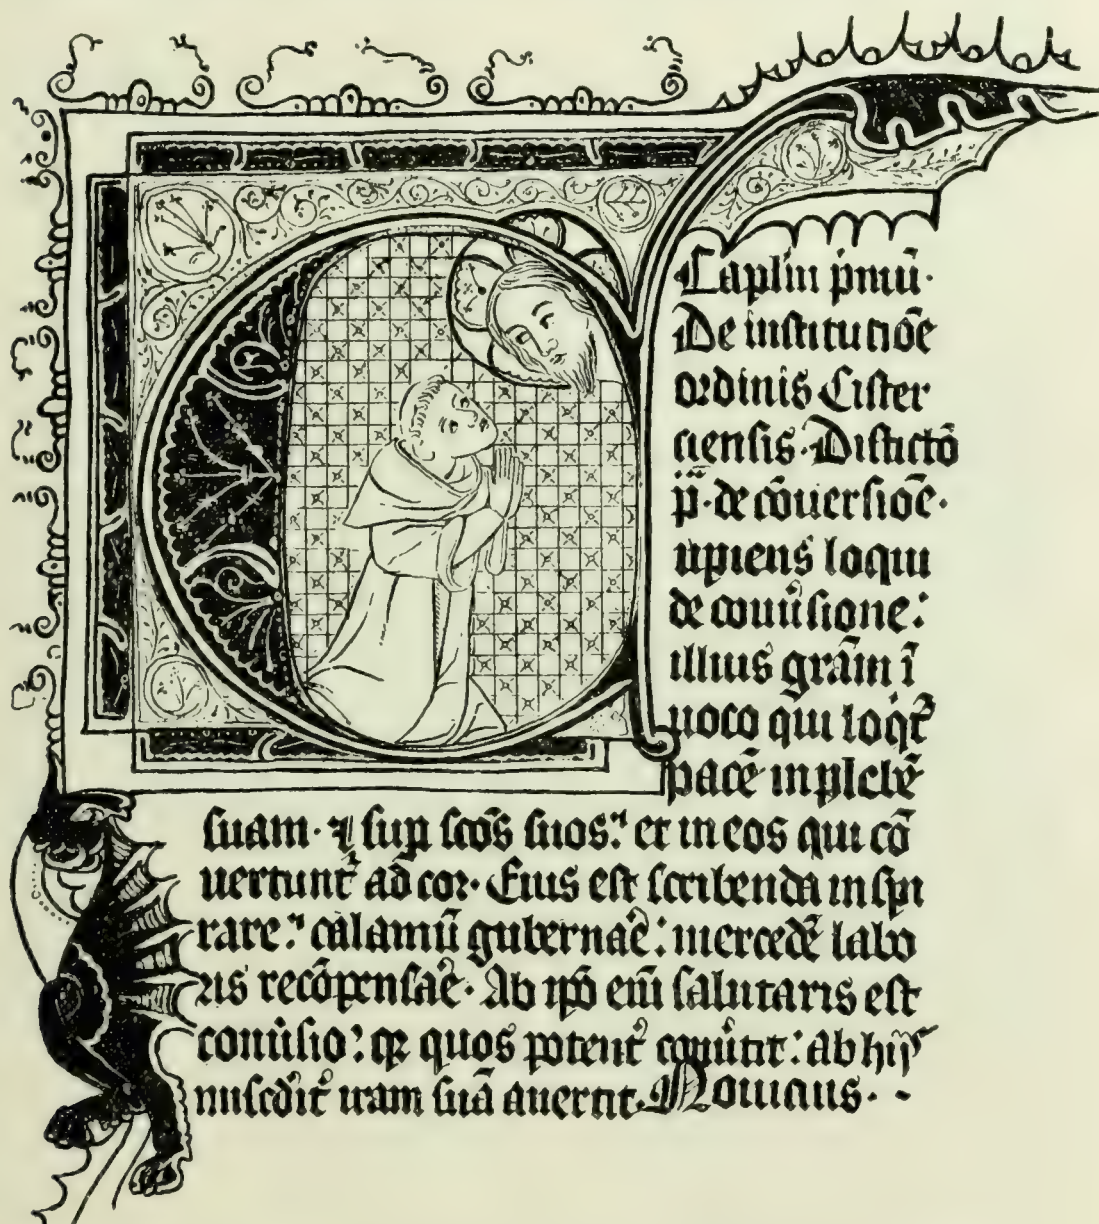 Caplm p̄mū·
De institutiōe
ordinis Cister
ciensis· Distictō
p̄· de cōuersiōe·
upiens loqui
de conuersione:
illius grām ī
uoco qui loqit᷑
pacē in plebē
suam· ⁊ sup scōs suos: et in eos qui cō
uertunt᷑ ad cor· Eius est scribenda inspi
rare: calamū gubernare: mercedē labo
ris recōpensare· Ab ipō eīn salutaris est
conūsio: qꝛ quos potent᷑ conūtit: ab hijs
misc̄dit᷑ iram suā auertit· Nouicius·